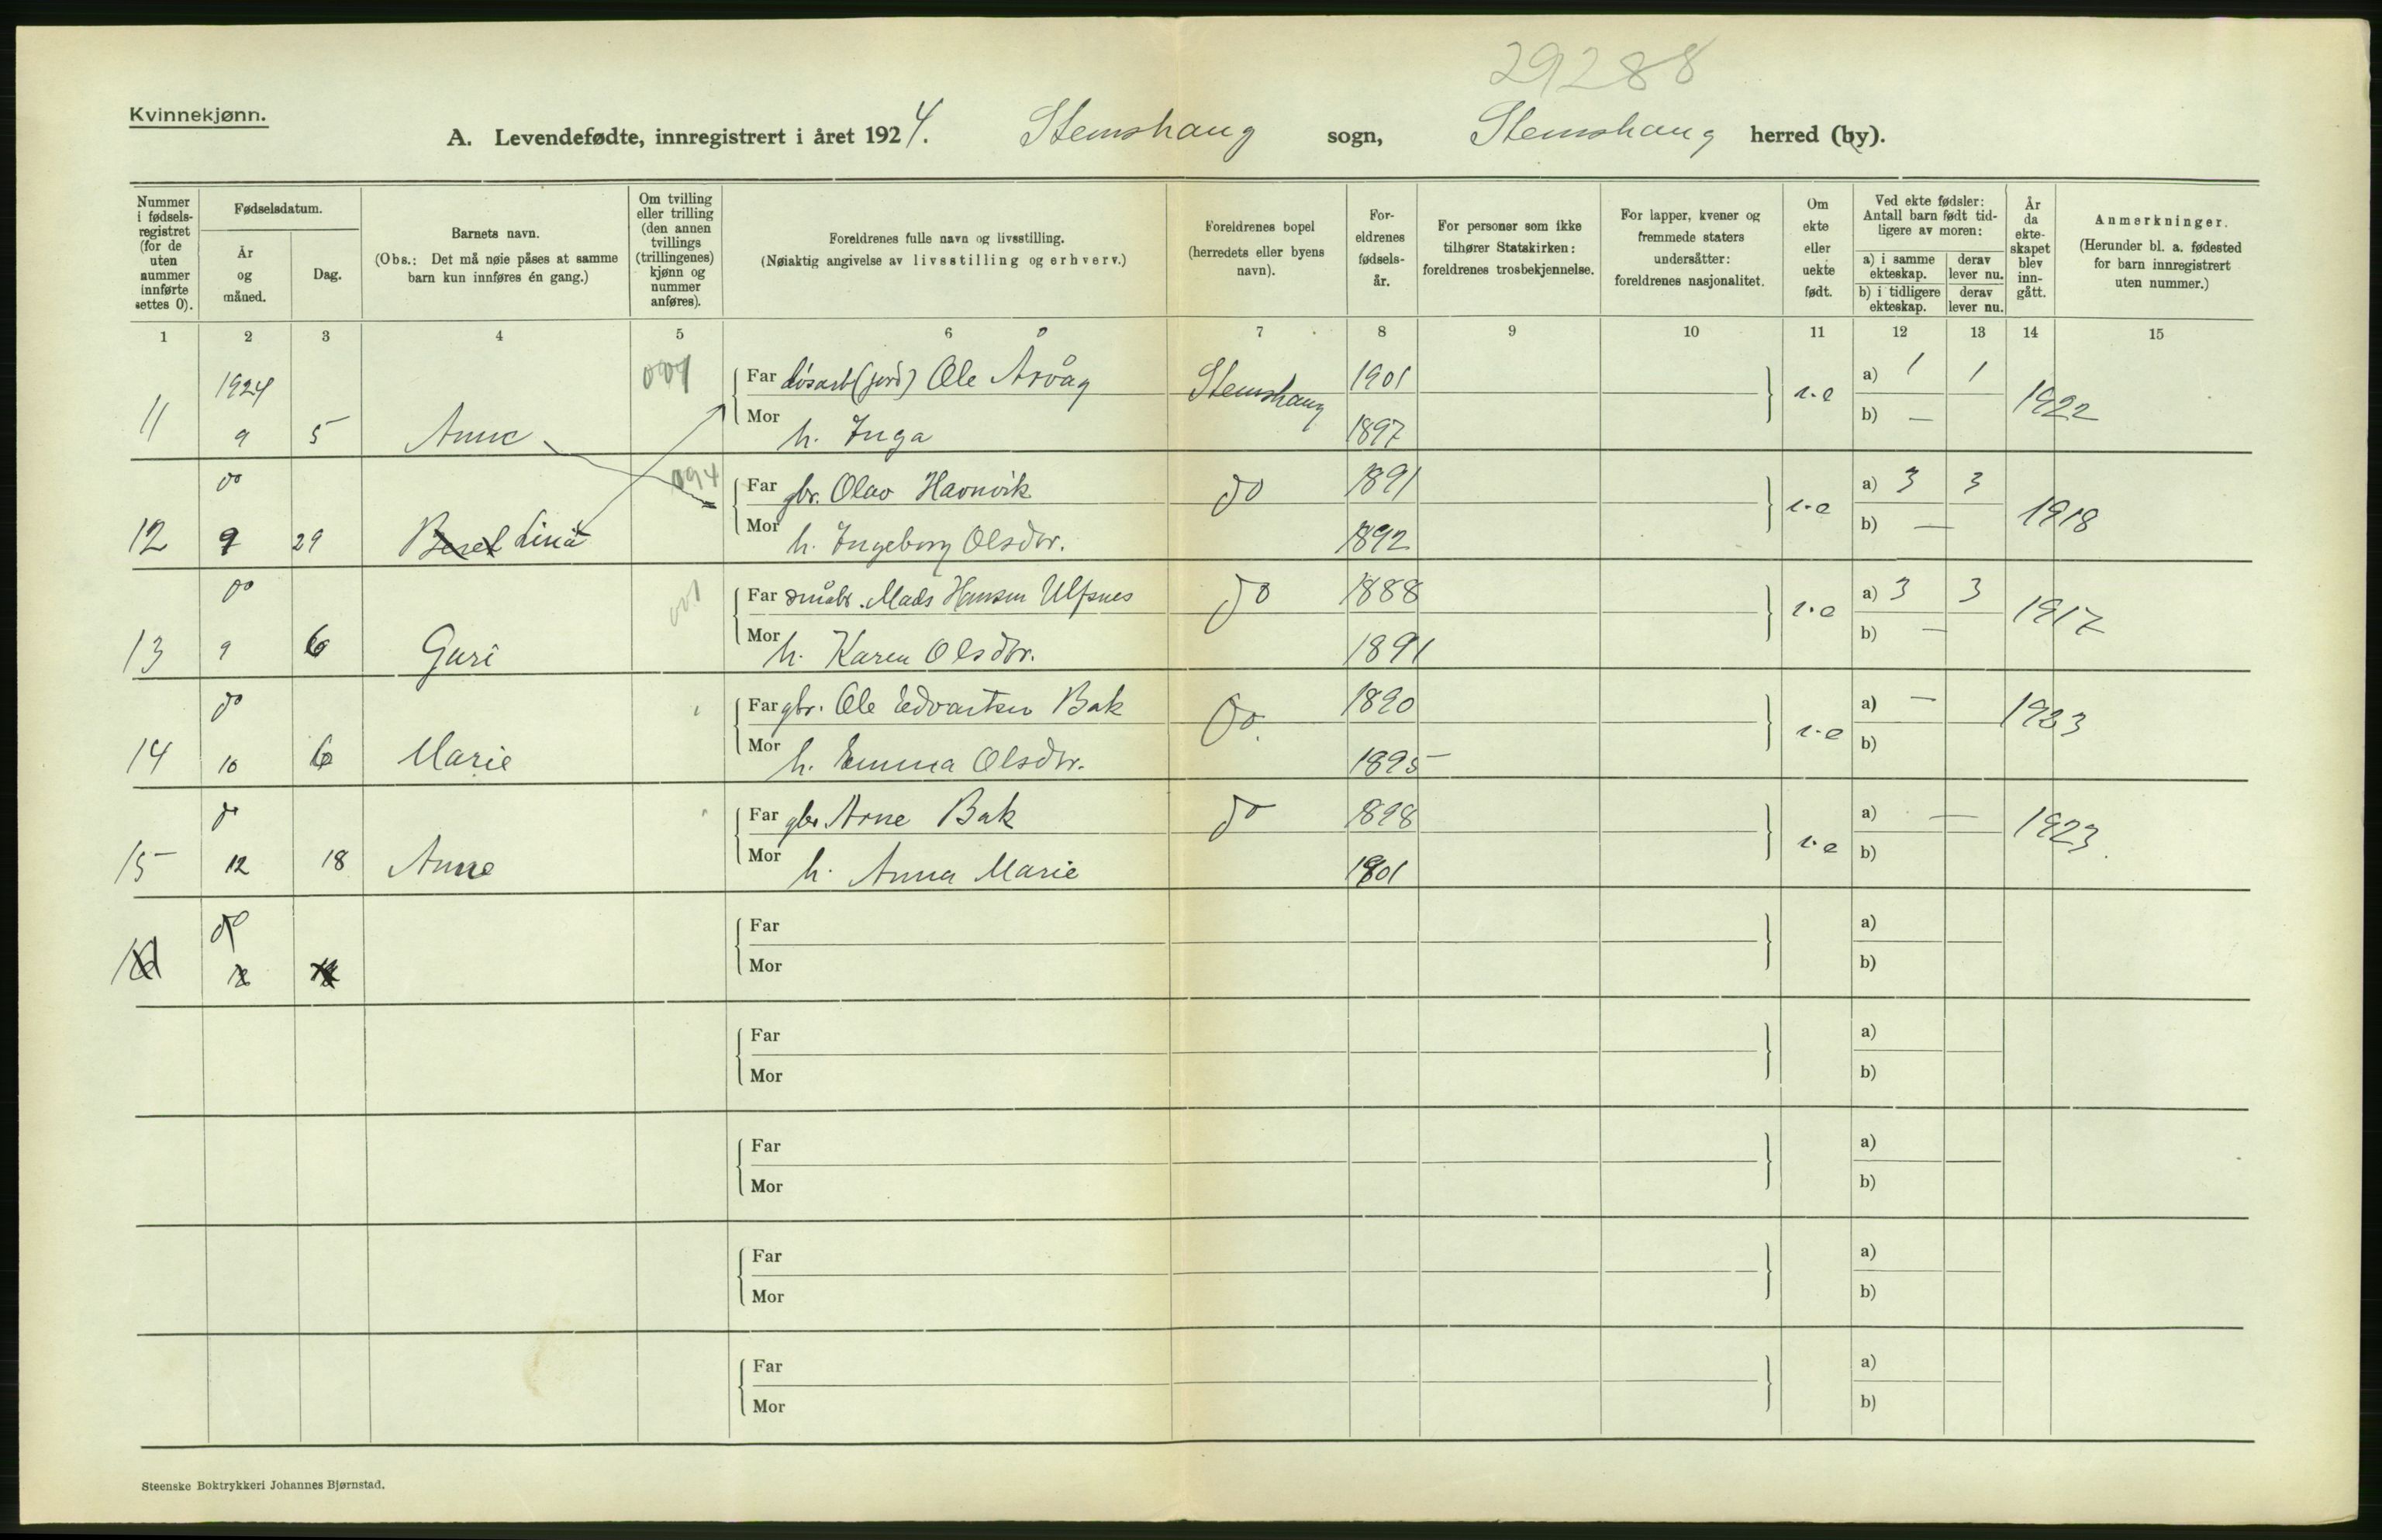 29288
Kvinnekjønn.
A. Levendefødte, innregistrert i året 1924. Stemshaug sogn, Stemshaug herred (by).
Nummer i fødsels-registret (for de uten nummer innførte settes 0).
Fødselsdatum.
År og måned.
Dag.
Barnets navn.
(Obs.: Det må nøie påses at samme barn kun innføres én gang.)
Om tvilling eller trilling (den annen tvillings (trillingenes) kjønn og nummer anføres).
Foreldrenes fulle navn og livsstilling.
(Nøiaktig angivelse av livsstilling og erhverv.)
Foreldrenes bopel (herredets eller byens navn).
For-eldrenes fødsels-år.
For personer som ikke tilhører Statskirken: foreldrenes trosbekjennelse.
For lapper, kvener og fremmede staters undersåtter: foreldrenes nasjonalitet.
Om ekte eller uekte født.
Ved ekte fødsler: Antall barn født tid-ligere av moren:
a) i samme ekteskap.
derav lever nu.
b) i tidligere ekteskap.
derav lever nu.
År da ekte-skapet blev inn-gått.
Anmerkninger.
(Herunder bl. a. fødested for barn innregistrert uten nummer.)
1 2 3 4 5 6 7 8 9 10 11 12 13 14 15
1924 Far løsarb (jord) Ole Årvåg Stemshaug 1901 a) 1 1
11 9 5 Anne Mor h. Inga 1897 b) — 1922
do 094 Far gbr. Olav Havnvik do 1891 a) 3 3
12 9 29 Beret Lina Mor h. Ingeborg Olsdtr. 1892 b) — 1918
do Far småbr. Mads Hansen Ulfsnes do 1888 a) 3 3
13 9 6 Guri Mor h. Karen Olsdtr. 1891 b) — 1917
do Far gbr. Ole Edvartsen Bak do. 1890 a) —
14 10 6 Marie Mor h. Emma Olsdtr. 1895 b) 1923
do Far gbr Arne Bak do 1898 a) —
15 12 18 Anne Mor h. Anna Marie 1901 b) 1923.
do Far a)
16 12 Mor b)
Far a)
Mor b)
Far a)
Mor b)
Far a)
Mor b)
Far a)
Mor b)
Steenske Boktrykkeri Johannes Bjørnstad.